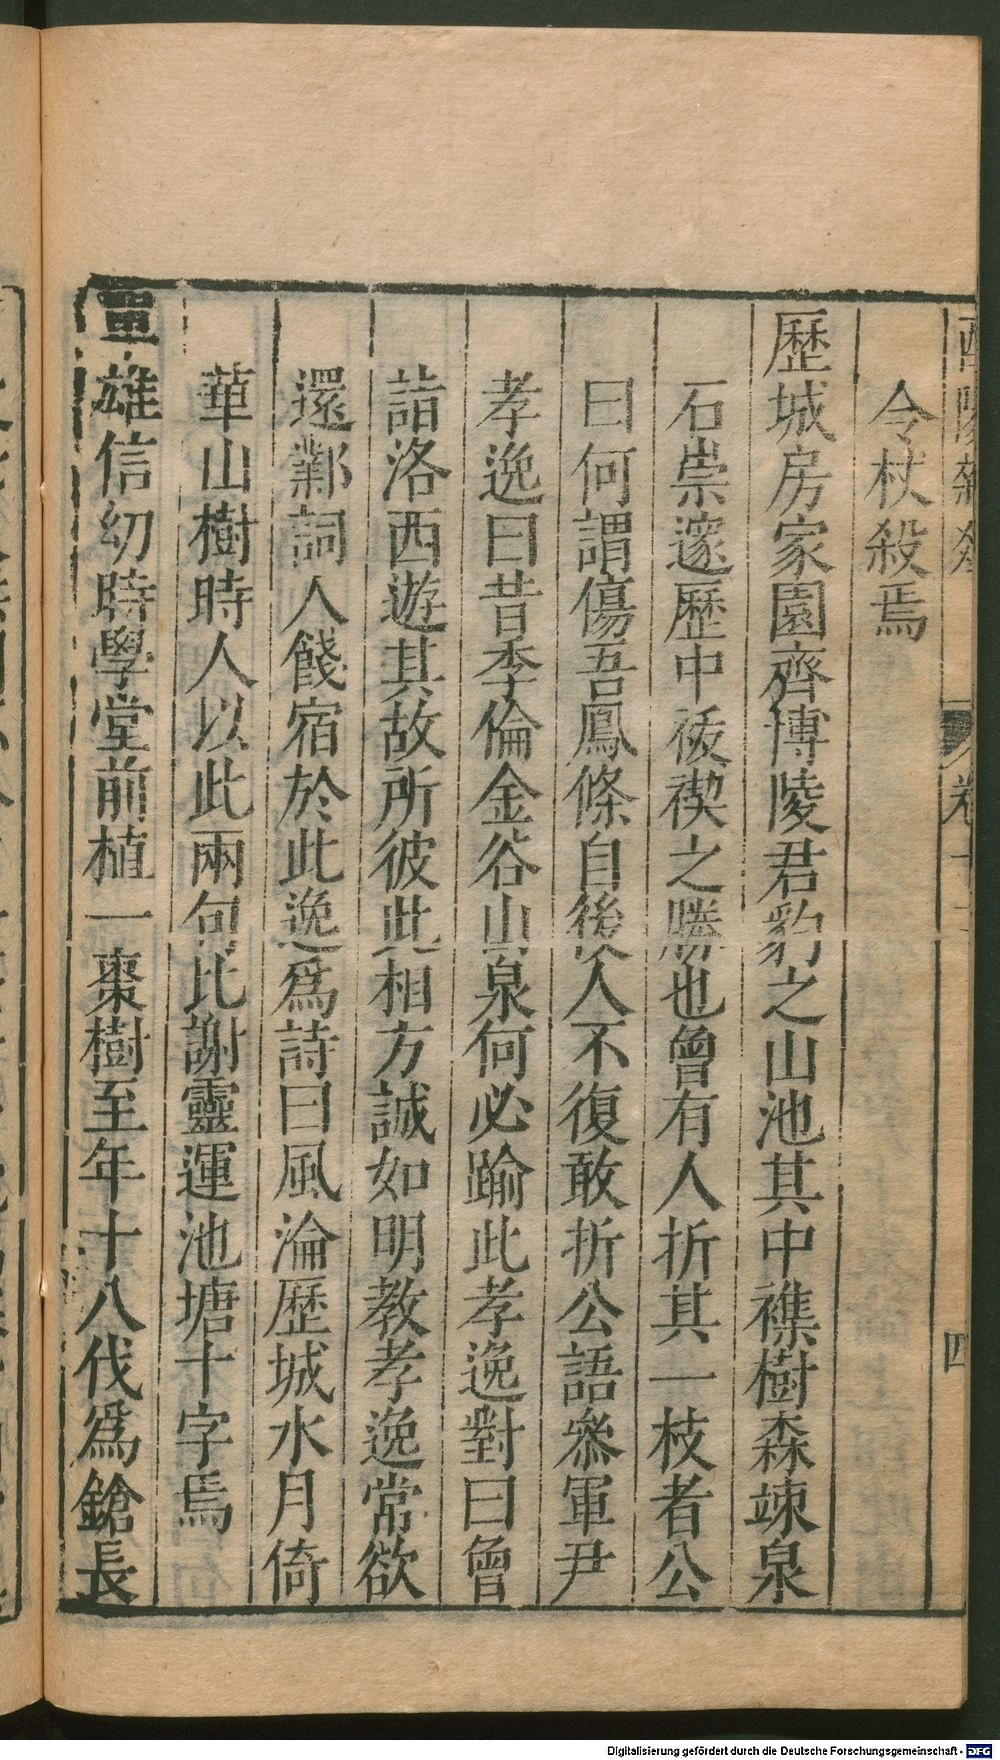 令杖殺焉
歷城房家園齊博陵君豹之山池其中襍樹森竦泉
石崇邃歷中祓禊之勝也曾有人折其一枝者公
曰何謂傷吾鳳條自後人不復敢折公語參軍尹
孝逸曰昔季倫金谷山泉何必踰此孝逸對曰曾
詣洛西遊其故所彼此相方誠如明教孝逸常欲
還鄴詞人餞宿於此逸為詩曰風淪歷城水月倚
華山樹時人以此兩句比謝靈運池塘十字焉
單雄信幼時學堂前植一棗樹至年十八伐為鎗長
四
Digitalisierung gefördert durch die Deutsche Forschungsgemeinschaft - DFG